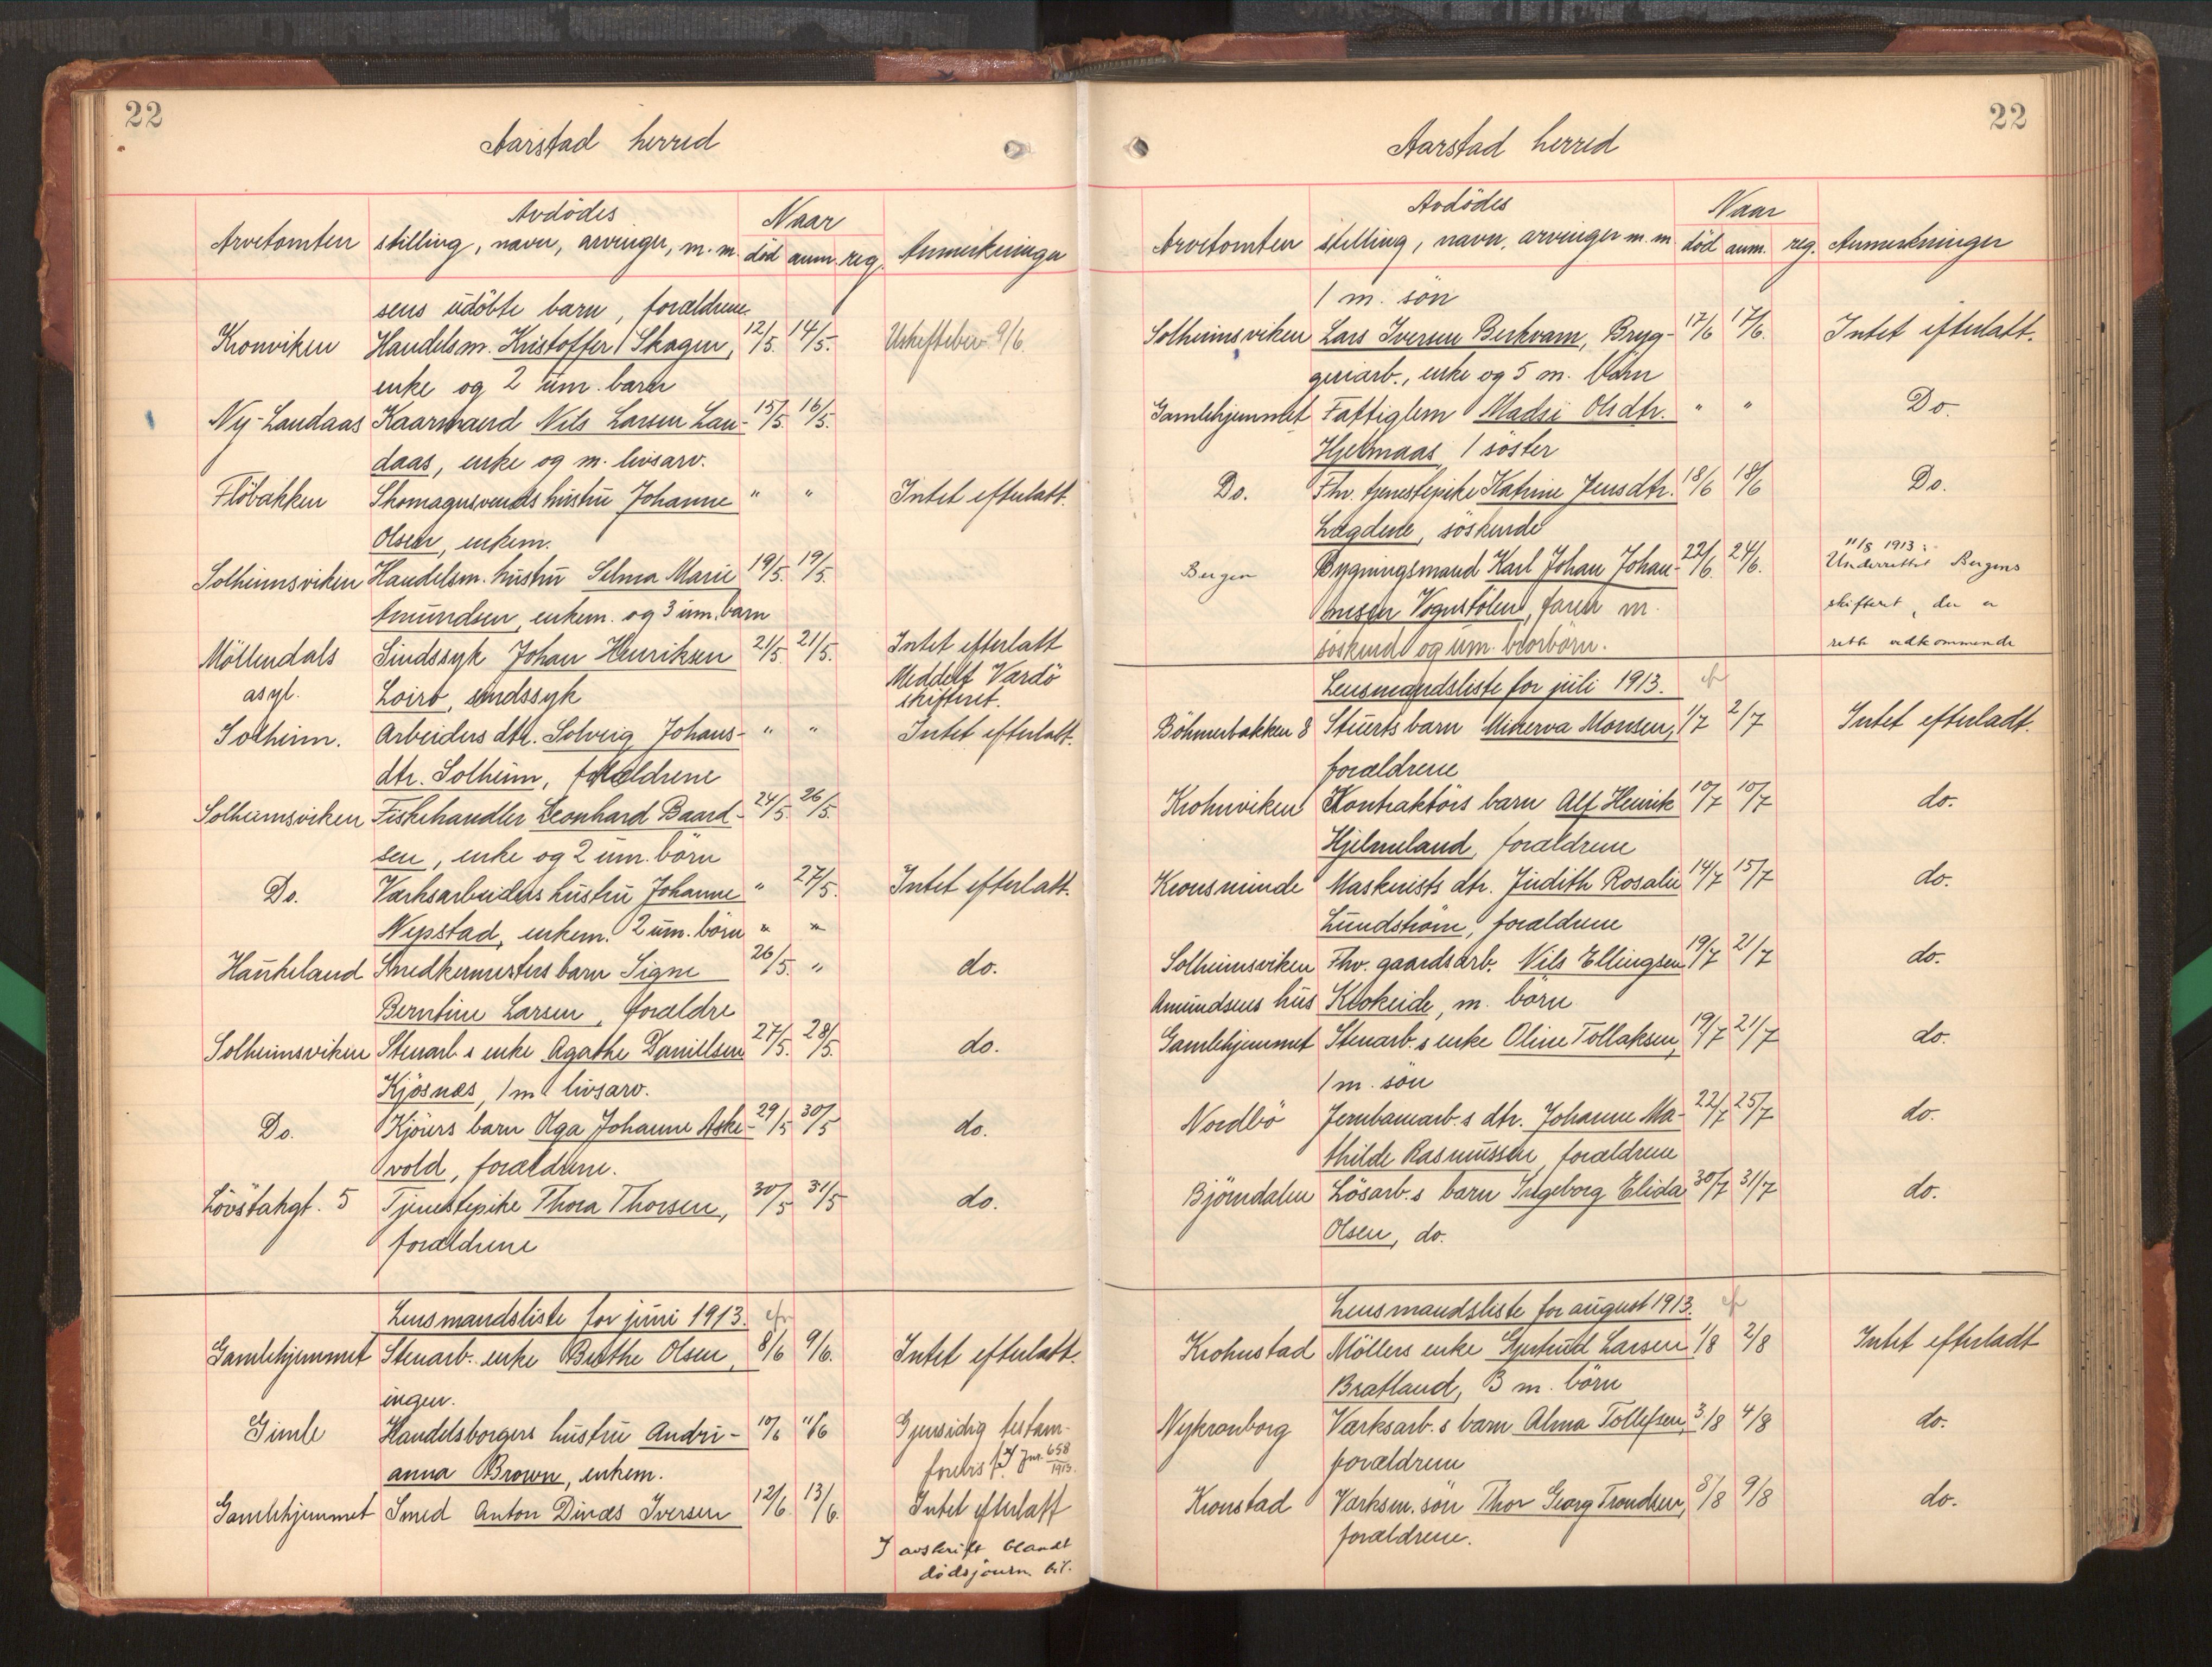 22
Aarstad herred
Arvetomten
Avdödes
stilling, navn, arvinger, m. m.
Naar
död anm. reg.
Anmerkninger
sens udöbte barn, forældrene
Kronviken Handelsm. Kristoffer Skagen, 12/5. 14/5. Uskiftebev. 9/6.
enke og 2 um. barn
Ny-Landaas Kaarmand Nils Larsen Lan- 15/5. 16/5.
daas, enke og m. livsarv.
Flöbakken Skomagersvends hustru Johanne " " Intet efterlatt.
Olsen, enkem.
Solheimsviken Handelsm. hustru Selma Marie 19/5. 19/5.
Amundsen, enkem. og 3 um. barn
Möllendals Sindssyk Johan Henriksen 21/5. 21/5. Intet efterlatt
asyl. Loiro, sindssyk Meddelt Vardö
skifteret.
Solheim. Arbeiders dtr. Solveig Johans- " " Intet efterlatt.
dtr. Solheim, forældrene
Solheimsviken Fiskehandler Leonhard Baard- 24/5. 26/5.
sen, enke og 2 um. börn
Do. Værksarbeiders hustru Johanne " 27/5. Intet efterlatt.
Nypstad, enkem. 2 um. börn " "
Haukeland Snedkermesters barn Signe 26/5. " do.
Berntine Larsen, forældre
Solheimsviken Stenarb.s enke Agathe Danielsen 27/5. 28/5. do.
Kjösnæs, 1 m. livsarv.
Do. Kjörers barn Olga Johanne Aske- 29/5 30/5 do.
vold, forældrene.
Lövstakgt. 5 Tjenestepike Thora Thorsen, 30/5 31/5 do.
forældrene
Lensmandsliste for juni 1913.
Gamlehjemmet Stenarb. enke Brethe Olsen, 8/6 9/6. Intet efterlatt.
ingen.
Gimle Handelsborgers hustru Andri- 10/6 11/6 Gjensidig testam-
anna Brown, enkem. forevis f. Jnr. 658/1913.
Gamlehjemmet Smed Anton Dinæs Iversen 12/6. 13/6. Intet efterlatt
I avskrift blandt
dödsjourn. bil.
22
Aarstad herred
Arvetomten
Avdödes
stilling, navn, arvinger m. m.
Naar
död anm. reg.
Anmerkninger
1 m. sön
Solheimsviken Lars Iversen Berkvam, Bryg- 17/6 17/6. Intet efterlatt.
geriarb., enke og 5 m. börn
Gamlehjemmet Fattiglem Madsi Olsdtr. " " Do.
Hjelmaas, 1 söster
Do. Fhv. tjenestepike Katrine Jensdtr. 18/6 18/6 Do.
Lægdene, söskende
Bergen Bygningsmand Karl Johan Johan- 22/6. 24/6. 11/8 1913:
Underrettet Bergens
nesen Vognstölen, faren m. skifteret, der er
söskend og um. brorbörn. rette vedkommende
Lensmandsliste for juli 1913.
Böhmerbakken 8 Stuerts barn Minerva Monsen, 1/7 2/7 Intet efterladt.
forældrene
Krohnviken Kontraktörs barn Alf Henrik 10/7 10/7 do.
Hjelmeland, forældrene
Kronsminde Maskinists dtr. Judith Rosalie 14/7 15/7 do.
Lundström, forældrene
Solheimsviken Fhv. gaardsarb. Nils Ellingsen 19/7 21/7 do.
Amundsens hus Krokeide, m. börn
Gamlehjemmet Stenarb.s enke Oline Tollaksen, 19/7 21/7 do.
1 m. sön
Nordbö Jernbanearb.s dtr. Johanne Ma- 22/7 25/7 do.
thilde Rasmussen, forældrene
Björndalen Lösarb.s barn Ingeborg Elida 30/7 31/7 do.
Olsen, do.
Lensmandsliste for august 1913.
Krohnstad Möllers enke Gjertrud Larsen 1/8 2/8 Intet efterladt
Bratland, 3 m. börn
Nykronborg Værksarb.s barn Alma Tollefsen, 3/8 4/8 do.
forældrene
Kronstad Værksm. sön Thor Georg Trondsen, 8/8 9/8 do.
forældrene.